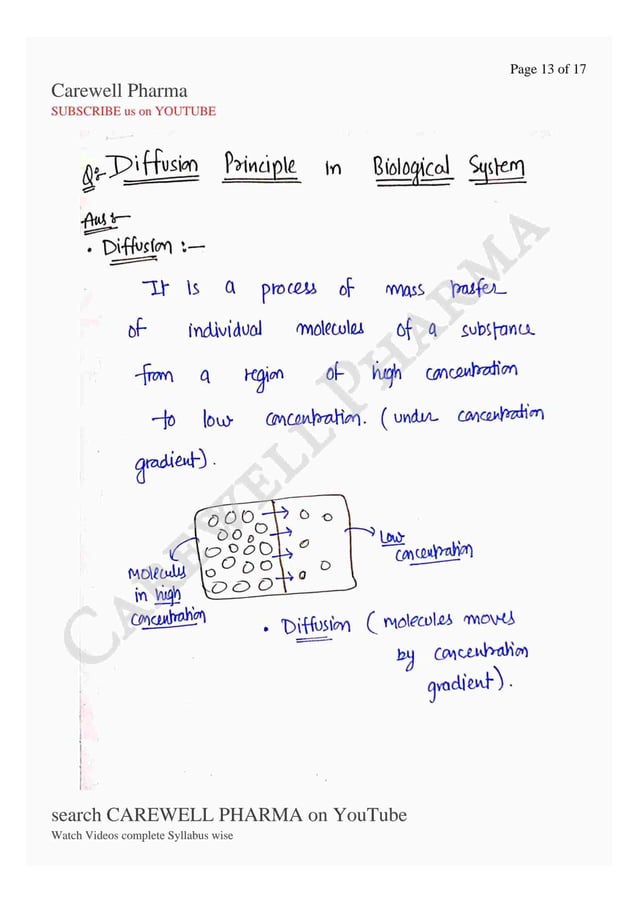 Page 13 of 17
Carewell Pharma
SUBSCRIBE us on YOUTUBE
Q:- Diffusion Principle in Biological System
Ans:-
• Diffusion :-
It is a process of mass trasfer
of individual molecules of a substance
from a region of high concentration
to low concentration. (under concentration
gradient).
Low
concentration
Molecules
in high
concentration
• Diffusion (molecules moves
by concentration
gradient).
CAREWELL PHARMA
search CAREWELL PHARMA on YouTube
Watch Videos complete Syllabus wise